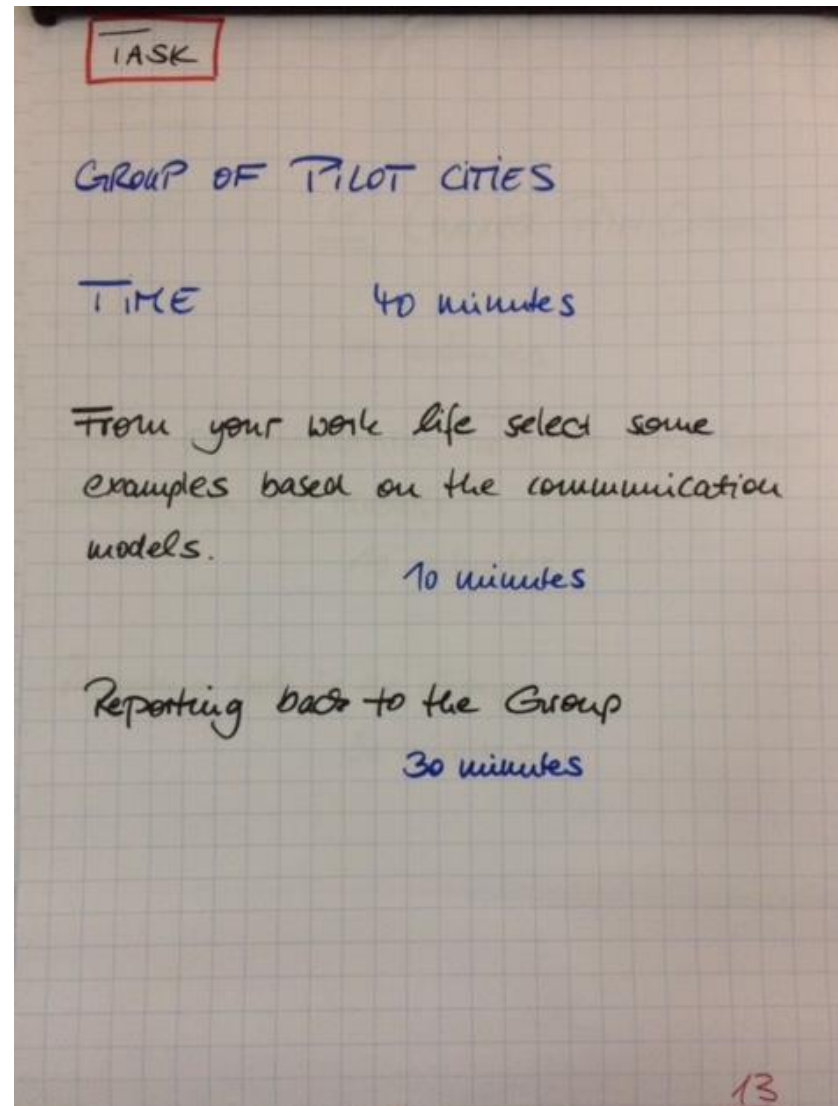 TASK
GROUP OF PILOT CITIES
TIME 40 minutes
From your work life select some
examples based on the communication
models.
10 minutes
Reporting back to the Group
30 minutes
13